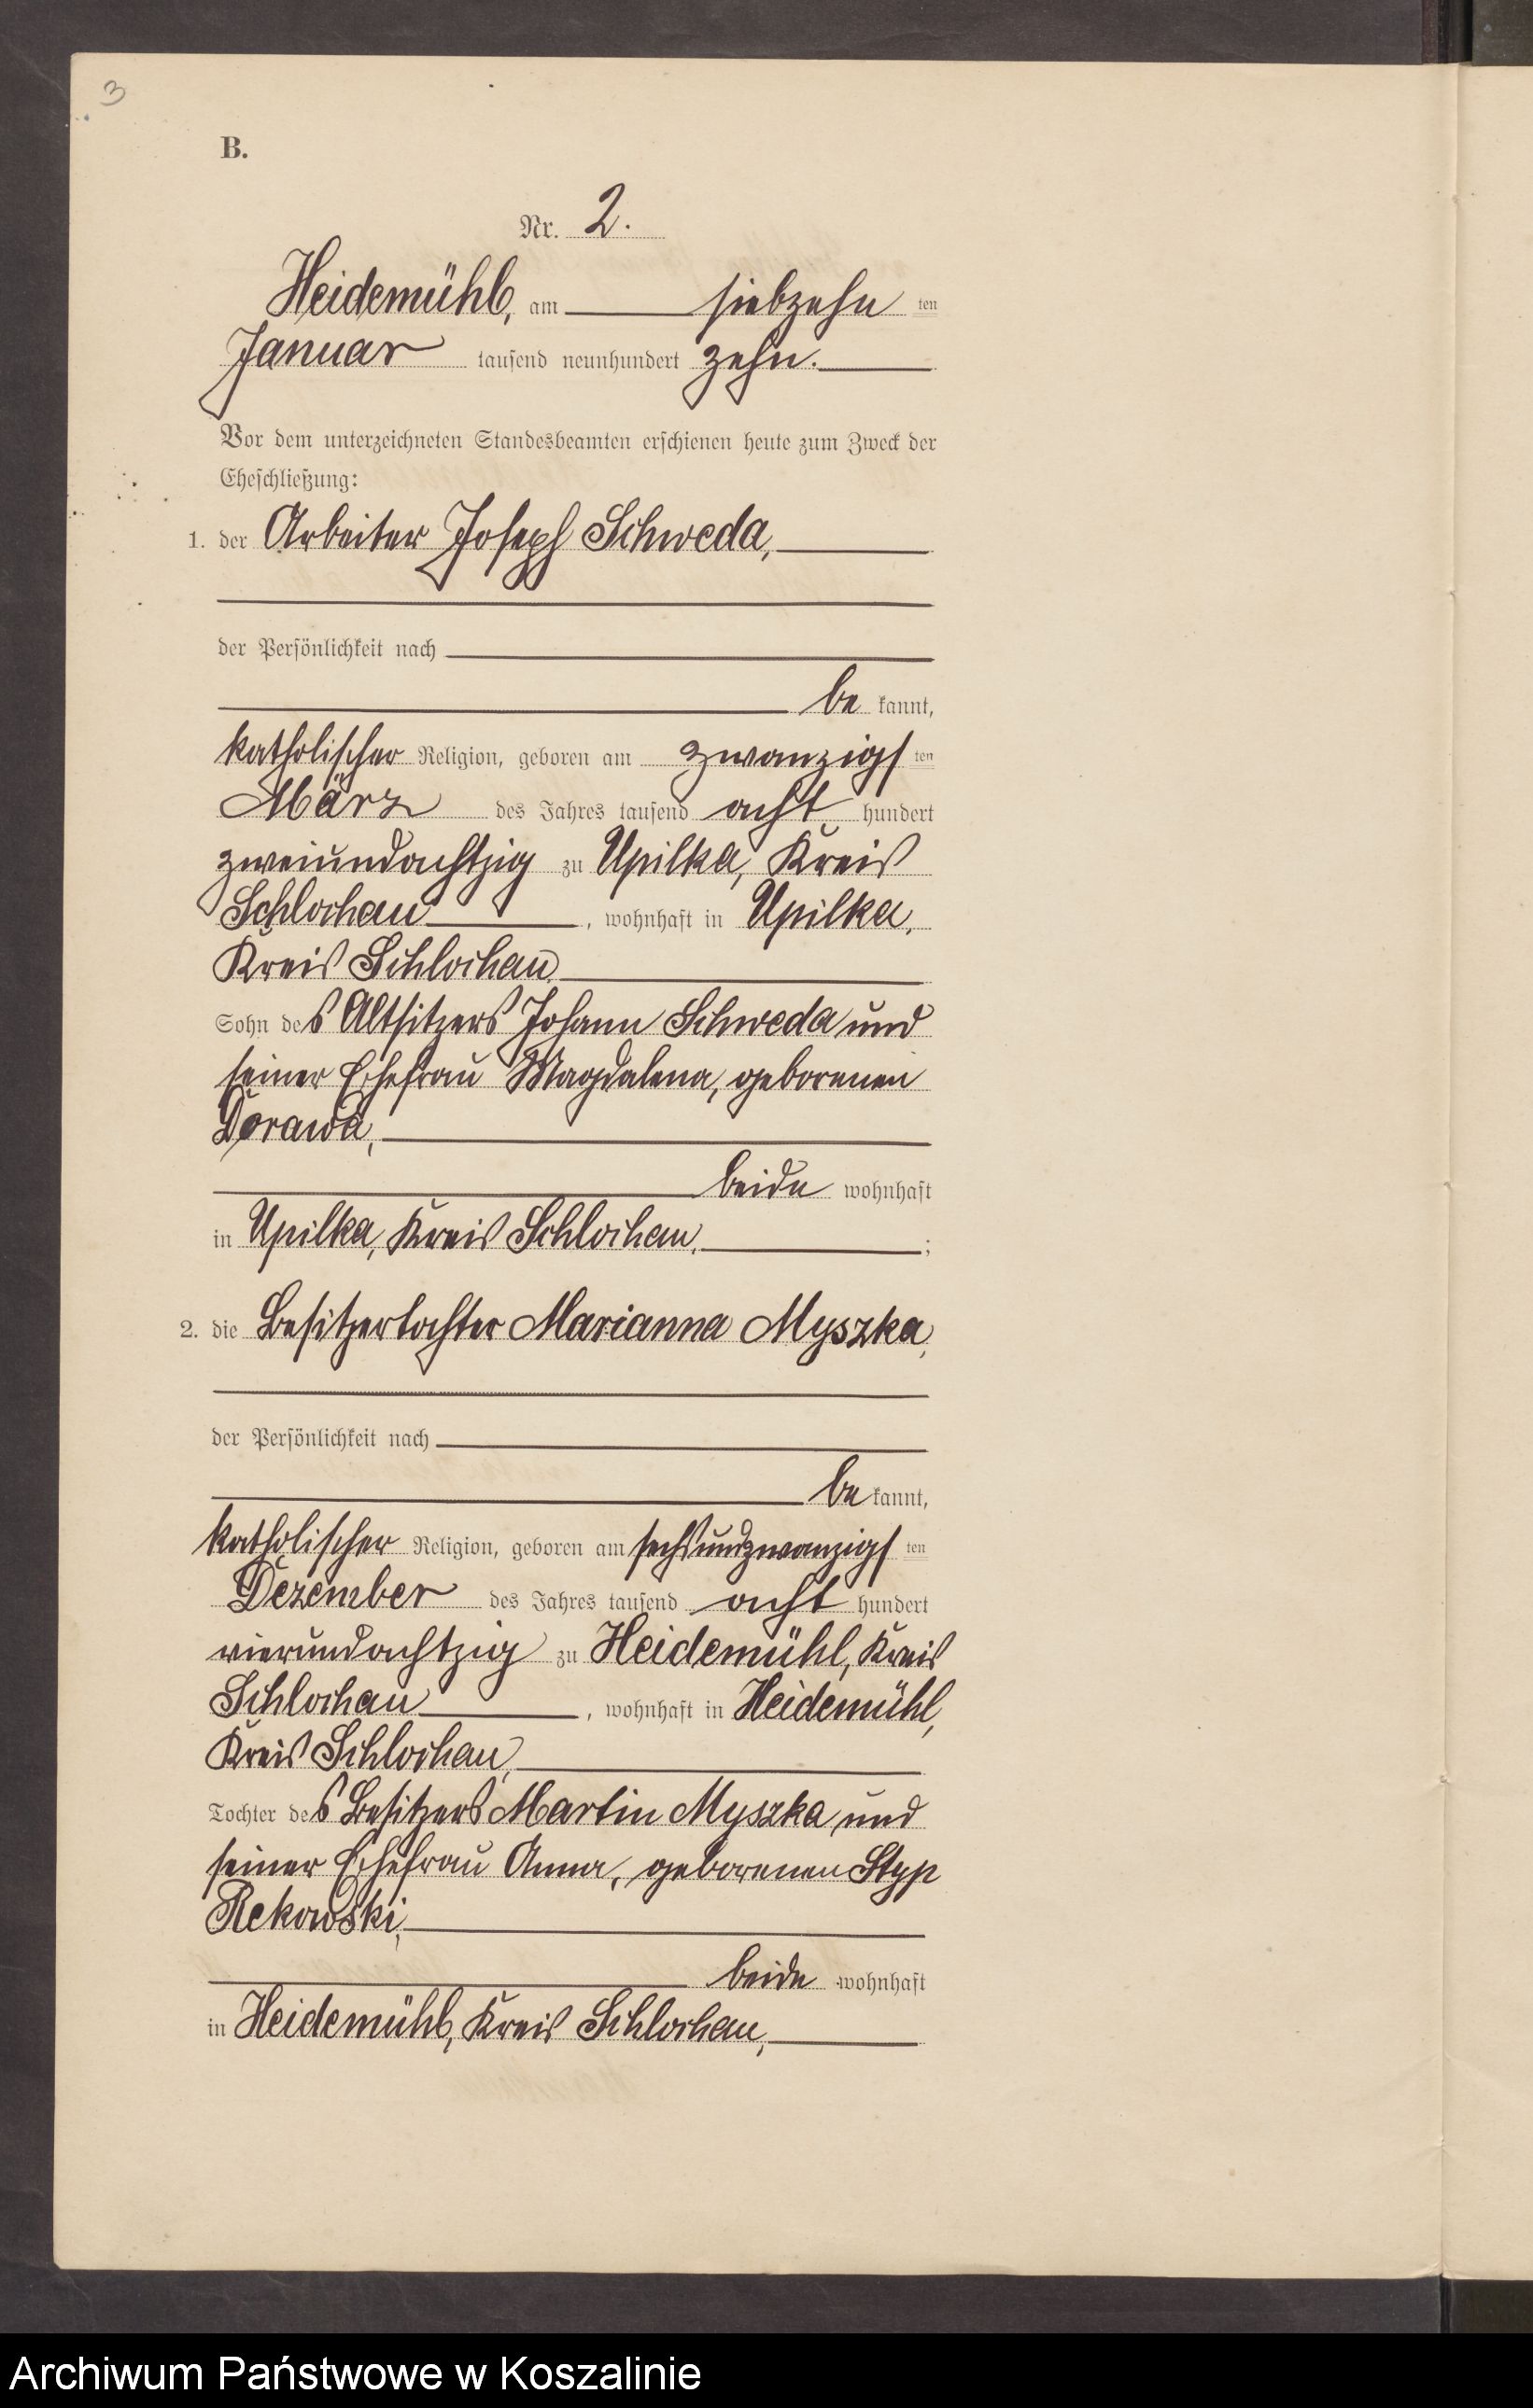 3
B.
Nr. 2.
Heidemühl, am siebzehn ten
Januar tausend neunhundert zehn.
Vor dem unterzeichneten Standesbeamten erschienen heute zum Zweck der
Eheschließung:
1. der Arbeiter Joseph Schweda,
der Persönlichkeit nach
be kannt,
katholischer Religion, geboren am zwanzigs ten
März des Jahres tausend acht hundert
zweiundachtzig zu Upilka, Kreis
Schlochau, wohnhaft in Upilka,
Kreis Schlochau
Sohn des Altsitzers Johann Schweda und
seiner Ehefrau Magdalena, geborenen
Dorawa,
beide wohnhaft
in Upilka, Kreis Schlochau, ;
2. die Besitzertochter Marianna Myszka,
der Persönlichkeit nach
be kannt,
katholischer Religion, geboren am sechsundzwanzigs ten
Dezember des Jahres tausend acht hundert
vierundachtzig zu Heidemühl, Kreis
Schlochau, wohnhaft in Heidemühl,
Kreis Schlochau,
Tochter des Besitzers Martin Myszka und
seiner Ehefrau Anna, geborenen Styp
Rekowski,
beide wohnhaft
in Heidemühl, Kreis Schlochau,
Archiwum Państwowe w Koszalinie